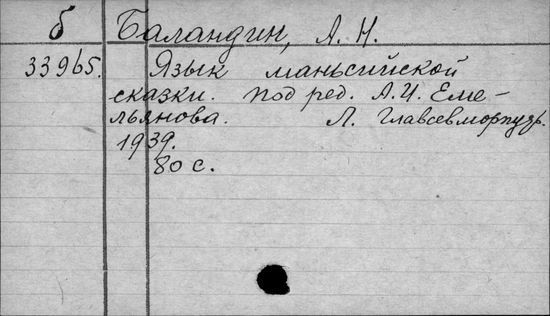 б Баландин, А. Н.
33965. Язык мансийской
сказки. Под ред. А.И. Еме-
льянова. Л. Главсевморпудь.
1939.
80 с.